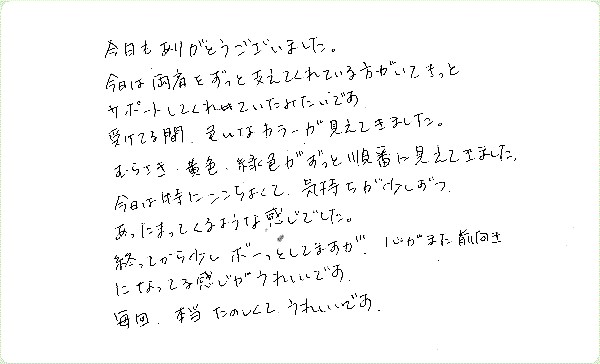 今日もありがとうございました。
今日は両肩をずっと支えてくれている方がいてきっと
サポートしてくれていたみたいです
受けてる間、色んなカラーが見えてきました。
むらさき・黄色・緑色がずっと順番に見えてきました。
今日は特にここちよくて、気持ちが少しずつ
あったまってくるような感じでした。
終ってから少しボーっとしてますが、心がまた前向き
になってる感じがうれしいです
毎回、本当たのしくてうれしいです。